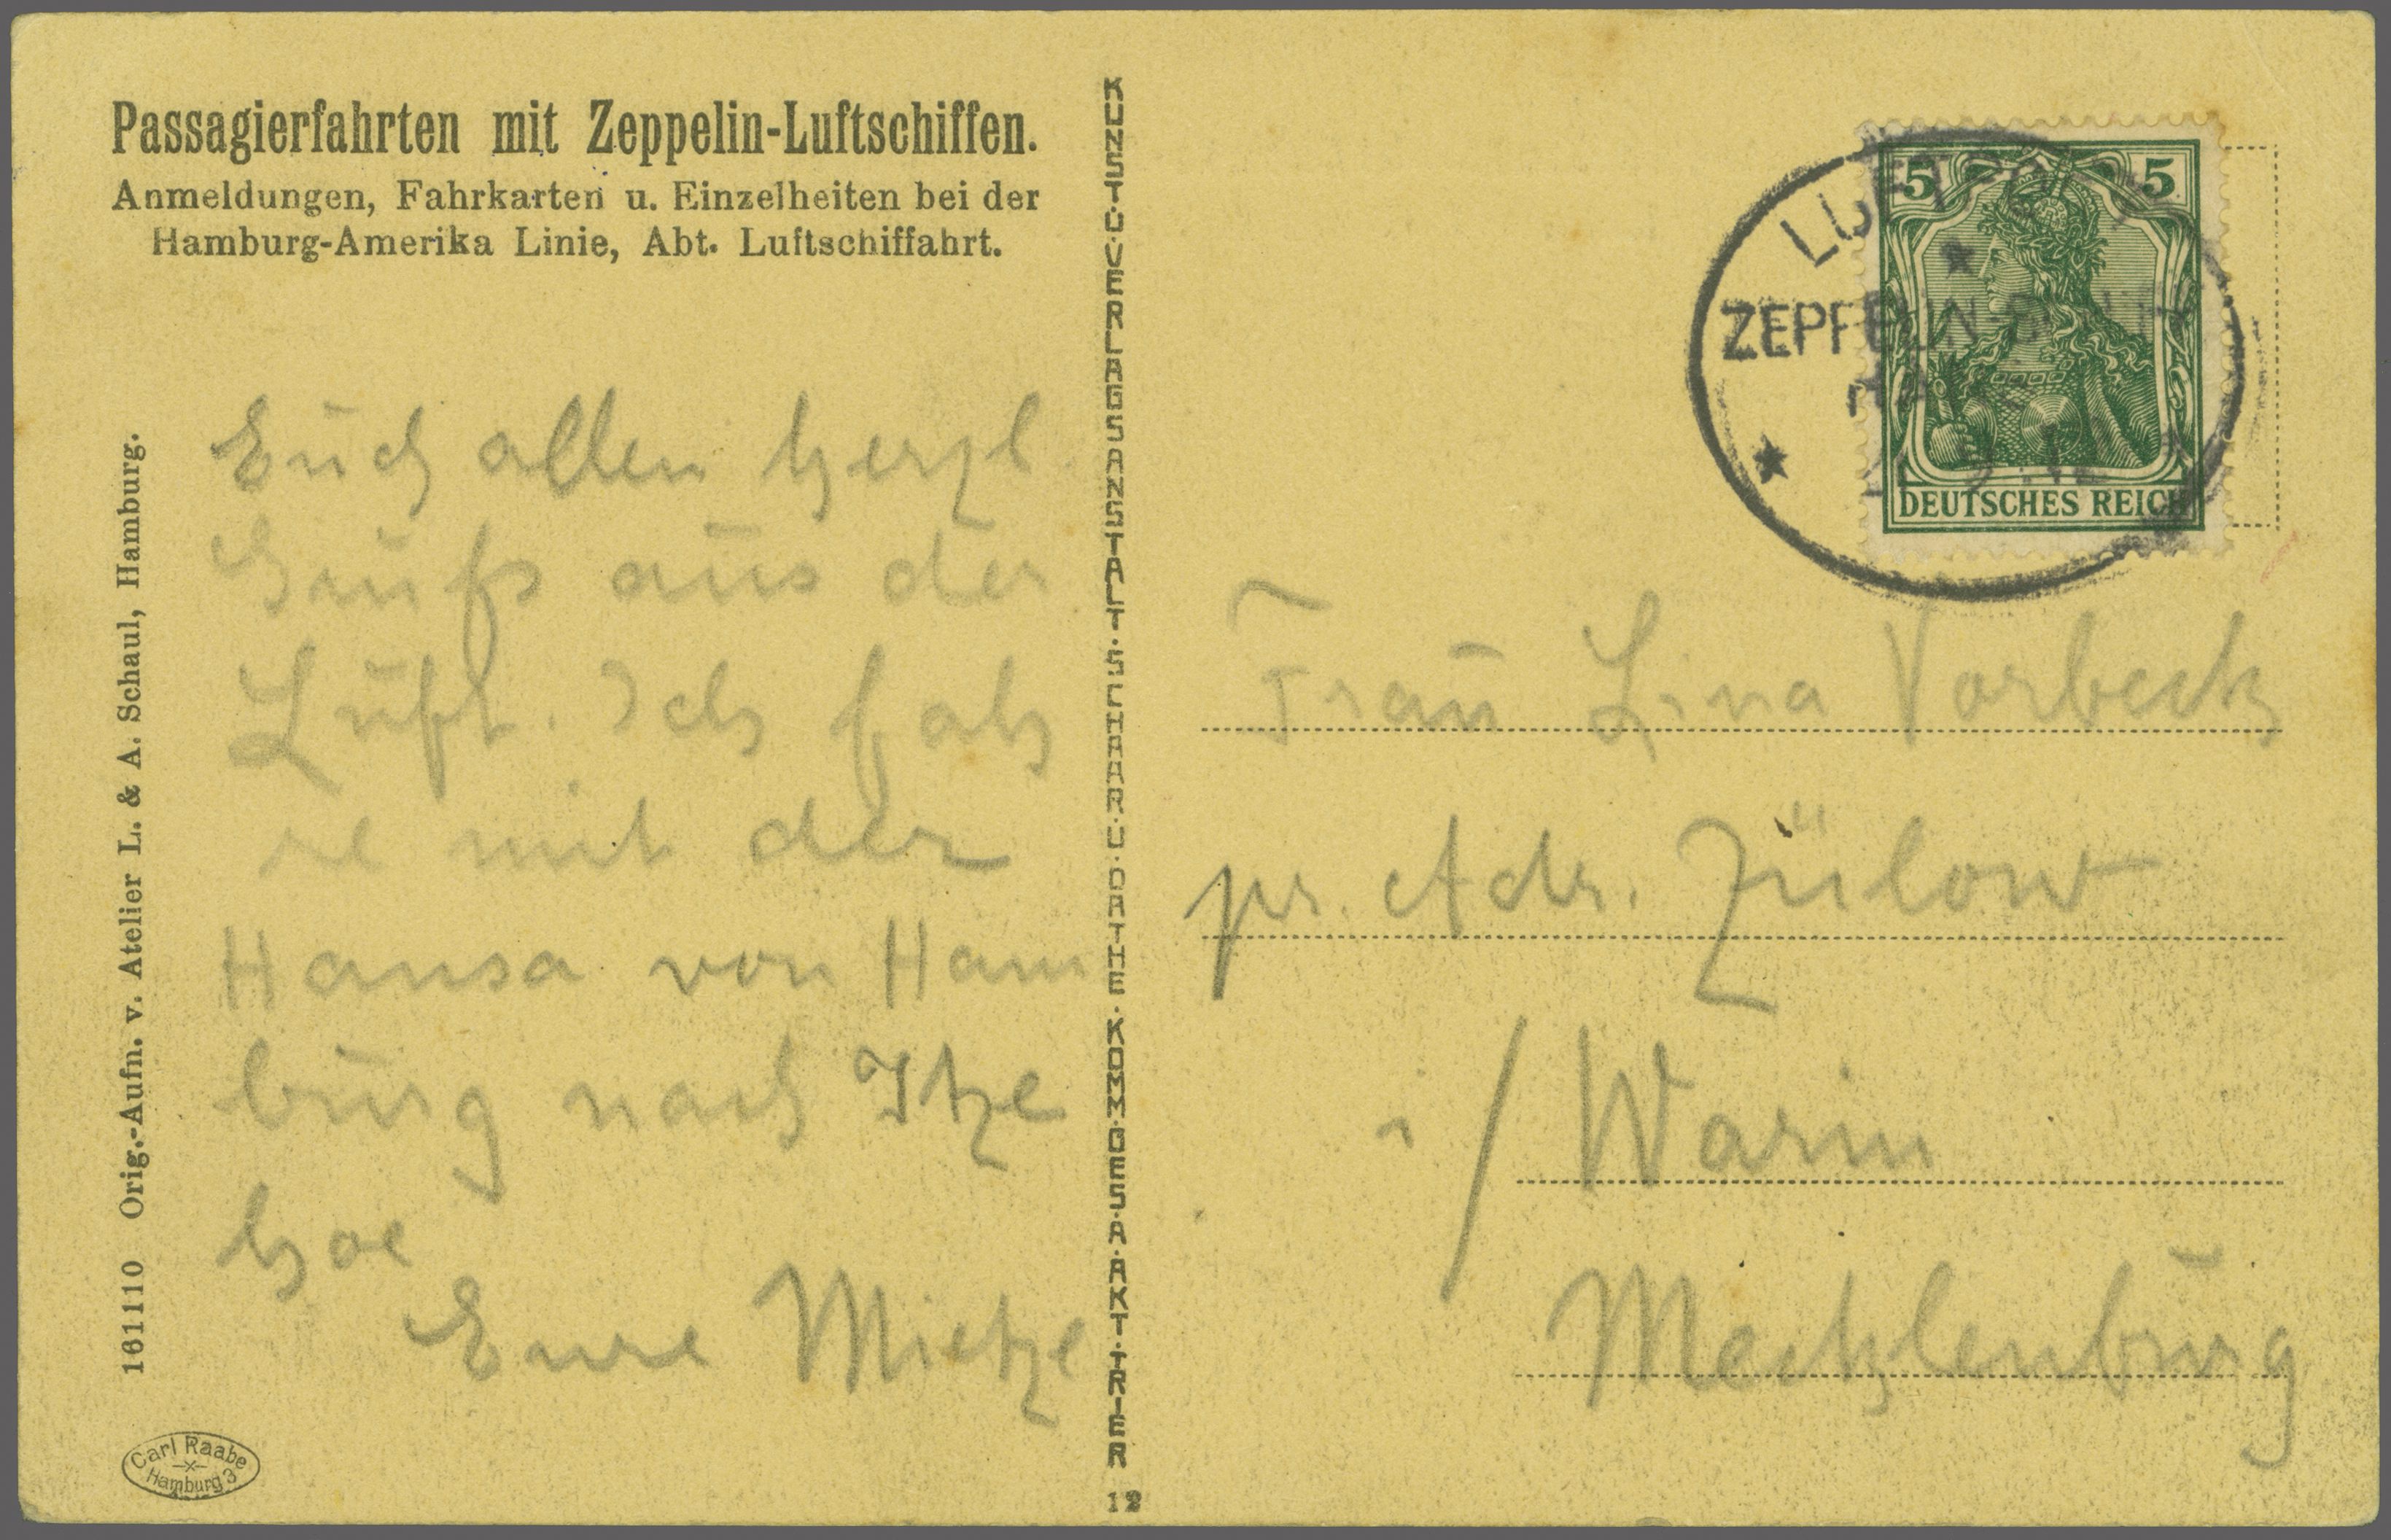 Passagierfahrten mit Zeppelin-Luftschiffen.
Anmeldungen, Fahrkarten u. Einzelheiten bei der
Hamburg-Amerika Linie, Abt. Luftschiffahrt.
Euch allen herzl.
Gruß aus der
Luft. Ich fah
re mit der
Hansa von Ham
burg nach Itze
hoe
Eure Mietze
161110 Orig.-Aufn. v. Atelier L. & A. Schaul, Hamburg.
Carl Raabe
Hamburg 3
KUNST·U·VERLAGSANSTALT·SCHAAR·U·DATHE·KOMM·GES·A·AKT·TRIER
12
5 5
DEUTSCHES REICH
ZEPPELIN
Frau Lina Vorbeck
pr. Adr. Zülow
i/Warin
Mecklenburg